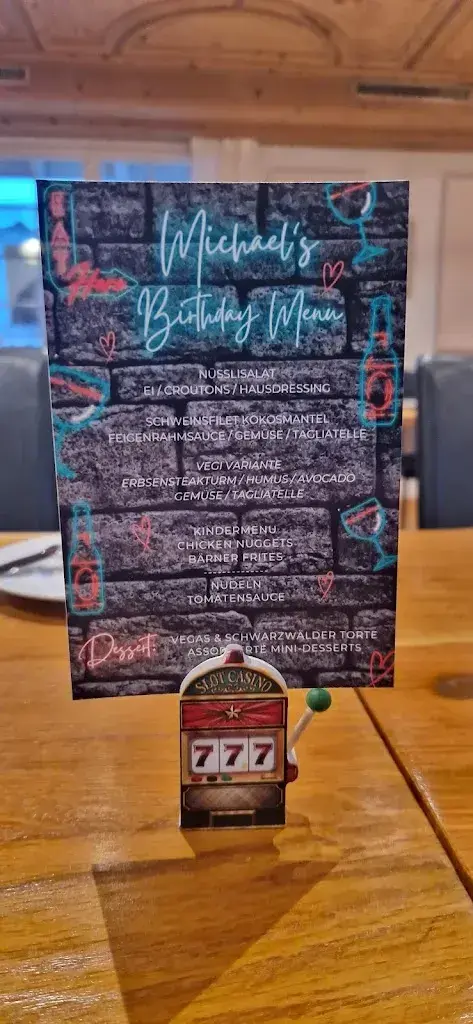 EAT
Here
Michael's
Birthday Menu
NÜSSLISALAT
EI / CROUTONS / HAUSDRESSING
SCHWEINSFILET KOKOSMANTEL
FEIGENRAHMSAUCE / GEMÜSE / TAGLIATELLE
VEGI VARIANTE
ERBSENSTEAKTURM / HUMUS / AVOCADO
GEMÜSE / TAGLIATELLE
KINDERMENU
CHICKEN NUGGETS
BÄRNER FRITES
NUDELN
TOMATENSAUCE
Dessert:
VEGAS & SCHWARZWÄLDER TORTE
MINI-DESSERTS
SLOT CASINO
777